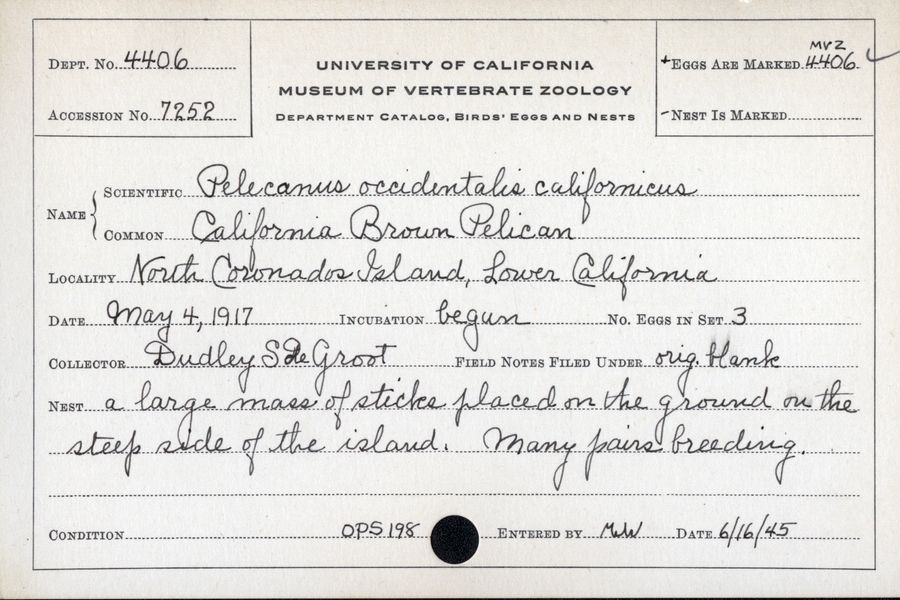 DEPT. NO. 4406
ACCESSION NO. 7252
UNIVERSITY OF CALIFORNIA
MUSEUM OF VERTEBRATE ZOOLOGY
DEPARTMENT CATALOG, BIRDS' EGGS AND NESTS
MVZ
+EGGS ARE MARKED 4406 ✓
-NEST IS MARKED
NAME
SCIENTIFIC Pelecanus occidentalis californicus
COMMON California Brown Pelican
LOCALITY North Coronados Island, Lower California
DATE May 4, 1917 INCUBATION begun NO. EGGS IN SET 3
COLLECTOR Dudley S. De Groot FIELD NOTES FILED UNDER orig. blank
NEST a large mass of sticks placed on the ground on the
steep side of the island. Many pairs breeding.
CONDITION OPS198 ENTERED BY MW DATE 6/16/45